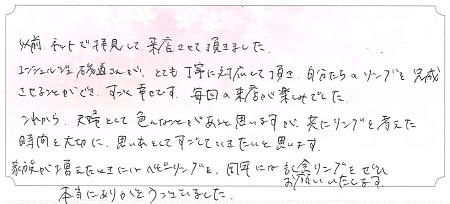 以前ネットで拝見して来店させて頂きました。
エンジェルでは磯道さんが、とても丁寧に対応して頂き、自分たちのリングを完成
させることができ、すごく幸せです。毎回の来店が楽しみでした。
これから、夫婦として色んなことがあると思いますが、共にリングを考えた
時間を大切に、思い出としてすごしていきたいと思います。
家族が増えたときにはベビーリングを、周年には記念リングをぜひ
お願いいたします
本当にありがとうございました。